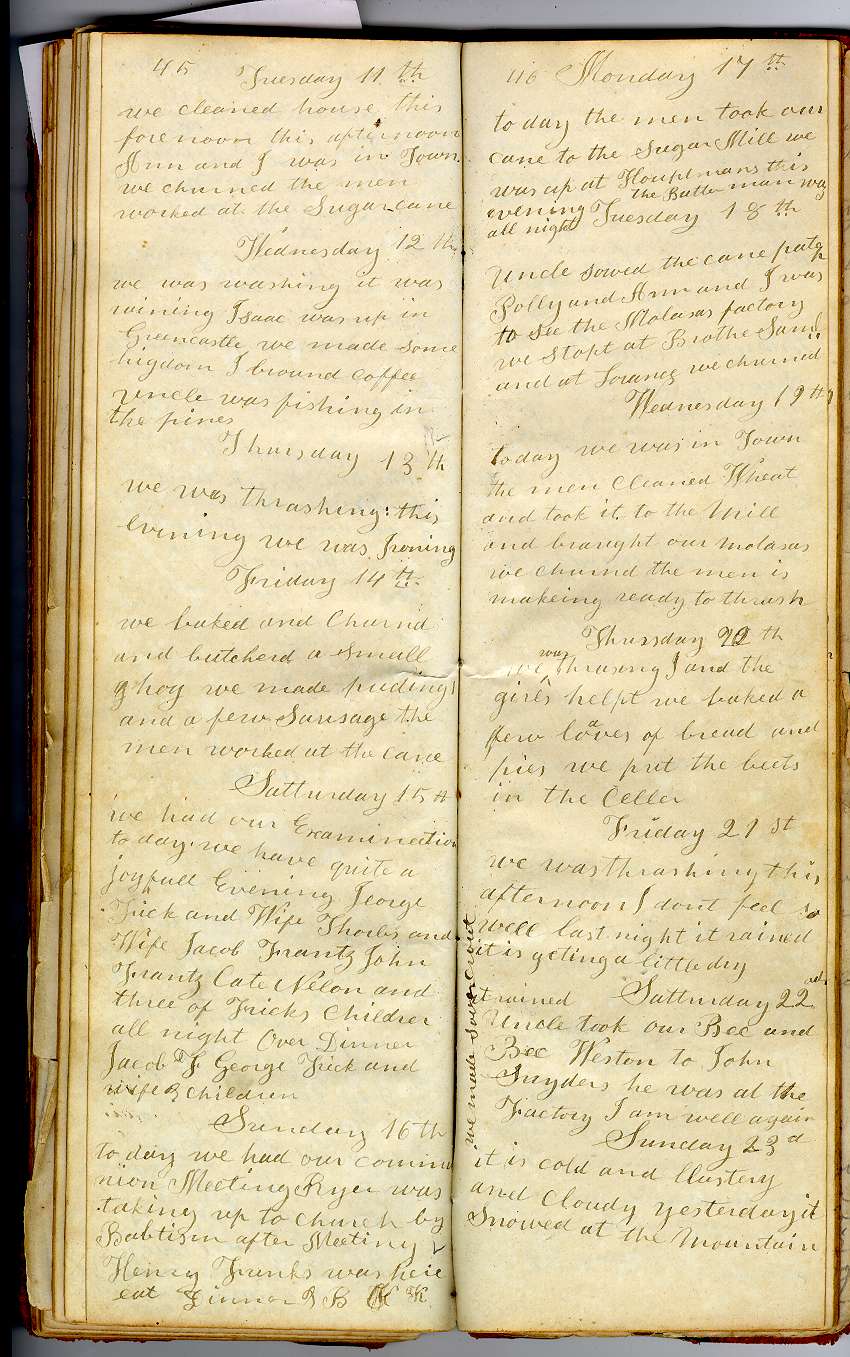 45 Tuesday 11th
we cleaned house this
forenoon this afternoon
Ann and I was in Town
we churned the men
worked at the Sugar cane
Wednesday 12th
we was washing it was
raining Isaac was up in
Greencastle we made some
higdom I bround coffee
Uncle was fishing in
the pines
Thursday 13th
we was thrashing: this
evening we was Ironing
Friday 14th
we baked and Churnd
and butcherd a small
hog we made pudings
and a few Sausage the
men worked at the cane
Satturday 15th
we had our Examination
to day. we have quite a
joyfull Evening George
Frick and Wife Thorbs and
Wife Jacob Frantz John
Frantz Cate Nelon and
three of Fricks Children
all night Over Dinner
Jacob F George Frick and
wife 3 children
Sunday 16th
to day we had our comiu
nion Meeting Ryer was
taking up to church by
Babtism after Meeting
Henry Funks was heie
eat Dinner B B
46 Monday 17th
to day the men took our
cane to the Sugar Mill we
was up at Houplmans this
evening the Butter man was
all night Tuesday 18th
Uncle sowed the cane patch
Polly and Ann and I was
to see the Molasas factory
we stopt at Brothe Saml
and at we churned
Wednesday 19th
today we was in Town
the men cleaned Wheat
and took it to the Mill
and braught our molasas
we churnd the men is
makeing ready to thrash
Thursday 20th
we was thrasing I and the
girls helpt we baked a
few loaves of bread and
pies we put the beets
in the Celler
Friday 21st
we was thrashing this
afternoon I dont feel so
well last night it rained
it is geting a little dry
it rained Satturday 22nd
Uncle took our Bec and
Bec Weston to John
Snyders he was at the
Factory I am well again
Sunday 23d
it is cold and Blustery
and Cloudy yesterday it
Snowed at the Mountain
we made sowercrout